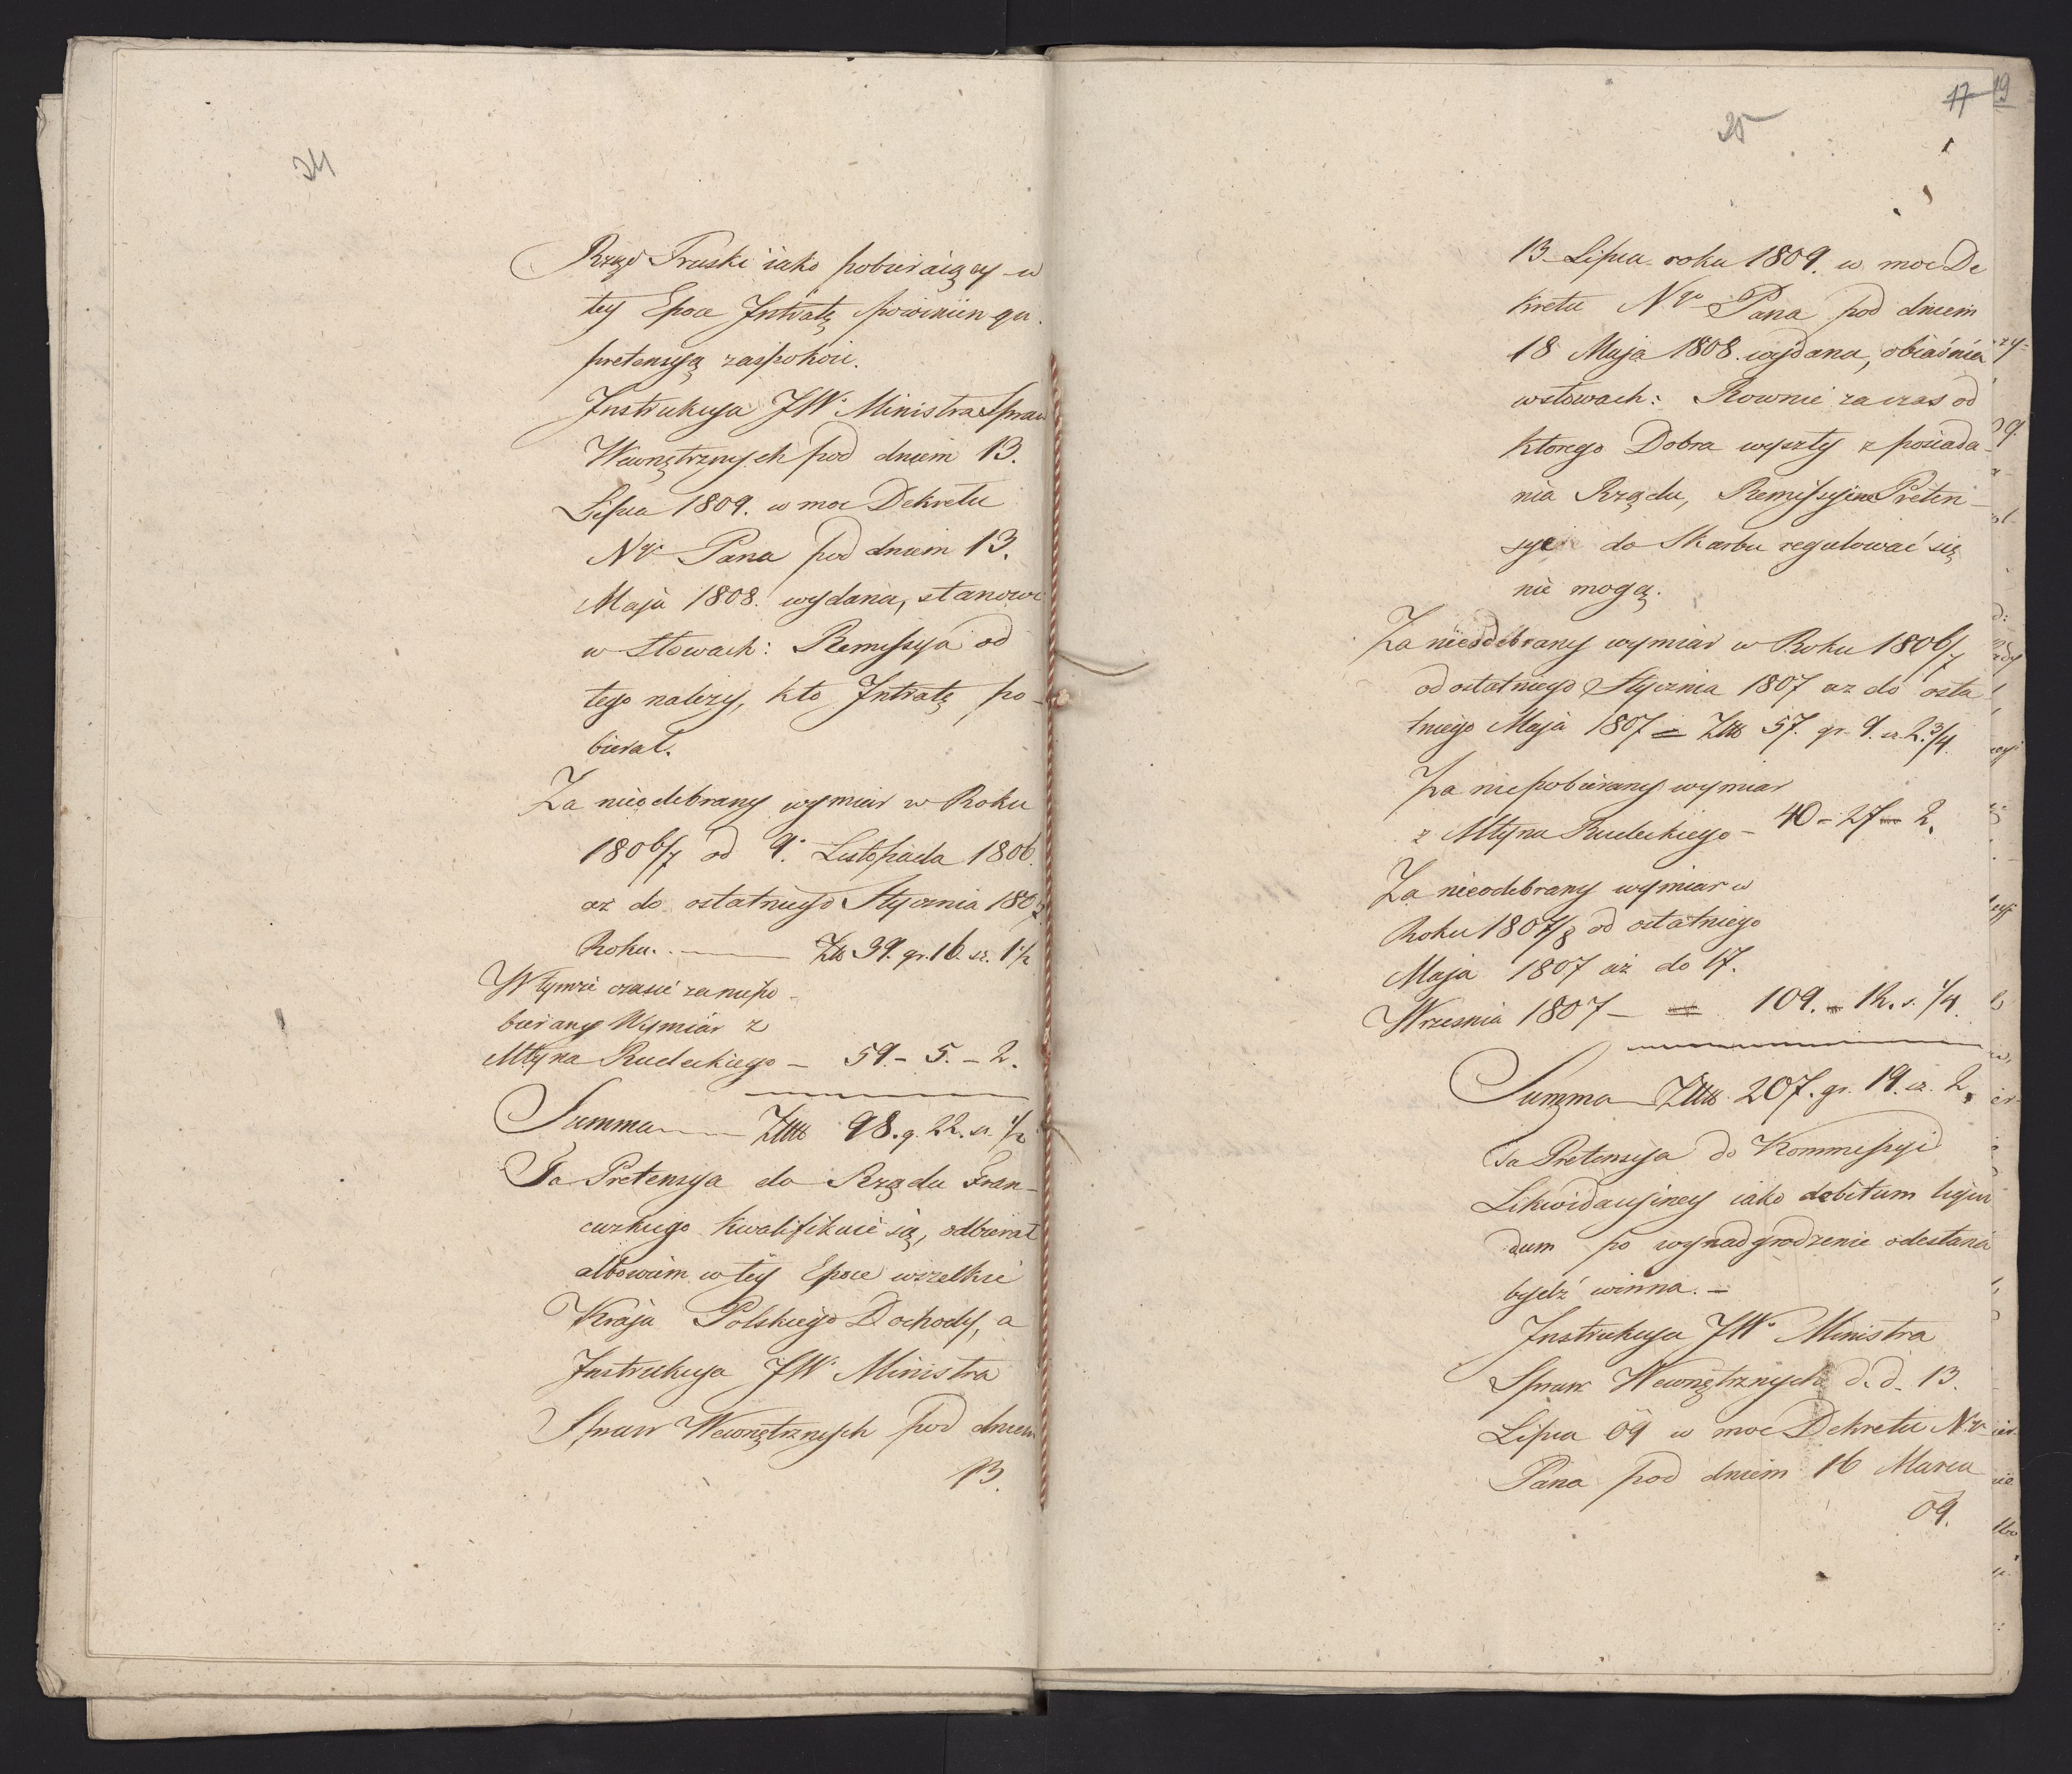 24
Rząd Pruski iako pobieraiący w
tey Epoce Intratę powinien qu.
pretensyą zaspokoić.
Instrukcya JW. Ministra Spraw
Wewnętrznych pod dniem 13.
Lipca 1809. w moc Dekretu
Ngo Pana pod dniem 13.
Maja 1808. wydana, stanowi
w słowach: Remissya od
tego należy, kto Intratę po-
bierał.
Za nieodebrany wymiar w Roku
1806/7 od 9. Listopada 1806.
aż do ostatniego Stycznia 1807
Roku. — Zł 39. gr. 16. sz. 1 1/2
W tymże czasie za niepo-
bierany Wymiar z
Młyna Rudeckiego — 59. — 5. — 2.
Summa — Złł 98. g. 22. sz. 1/2
Ta Pretensya do Rządu Fran-
cuzkiego kwalifikuie się, odbierał
albowiem w tey Epoce wszelkie
Kraju Polskiego Dochody, a
Instrukcya JW. Ministra
Spraw Wewnętrznych pod dniem
13.
17 19
25
13 Lipca roku 1809. w moc De
kretu Ngo Pana pod dniem
18 Maja 1808. wydana, obiaśnia
w słowach: Rownie za czas od
ktorego Dobra wyszły z posiada-
nia Rządu, Remissyine Preten-
sye do Skarbu regulować się
nie mogą.
Za nieodebrany wymiar w Roku 1806/7
od ostatniego Stycznia 1807 aż do osta
tniego Maja 1807 = Złł 57. gr. 9. sz. 2. 3/4.
Za niepobierany wymiar
z Młyna Rudeckiego — 40 — 27 — 2.
Za nieodebrany wymiar w
Roku 1807/8 od ostatniego
Maja 1807 aż do 17.
Września 1807 — 109. — 12. s. 1/4.
Summa Złł 207. gr. 19. sz. 2.
Ta Pretensya do Kommissyi
Likwidacyiney iako debitum liqui
dum po wynadgrodzenie odesłana
bydź winna. —
Instrukcya JW. Ministra
Spraw Wewnętrznych d. d. 13.
Lipca 09 w moc Dekretu Ngo
Pana pod dniem 16 Marca
09.